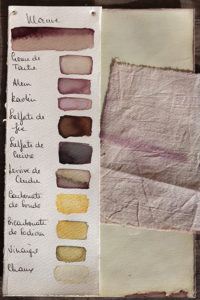 Mauve
Crème de
Tartre
Alun
Kaolin
Sulfate de
fer
Sulfate de
Cuivre
Lessive de
Cendre
Carbonate
de soude
Bicarbonate
de sodium
Vinaigre
Chaux